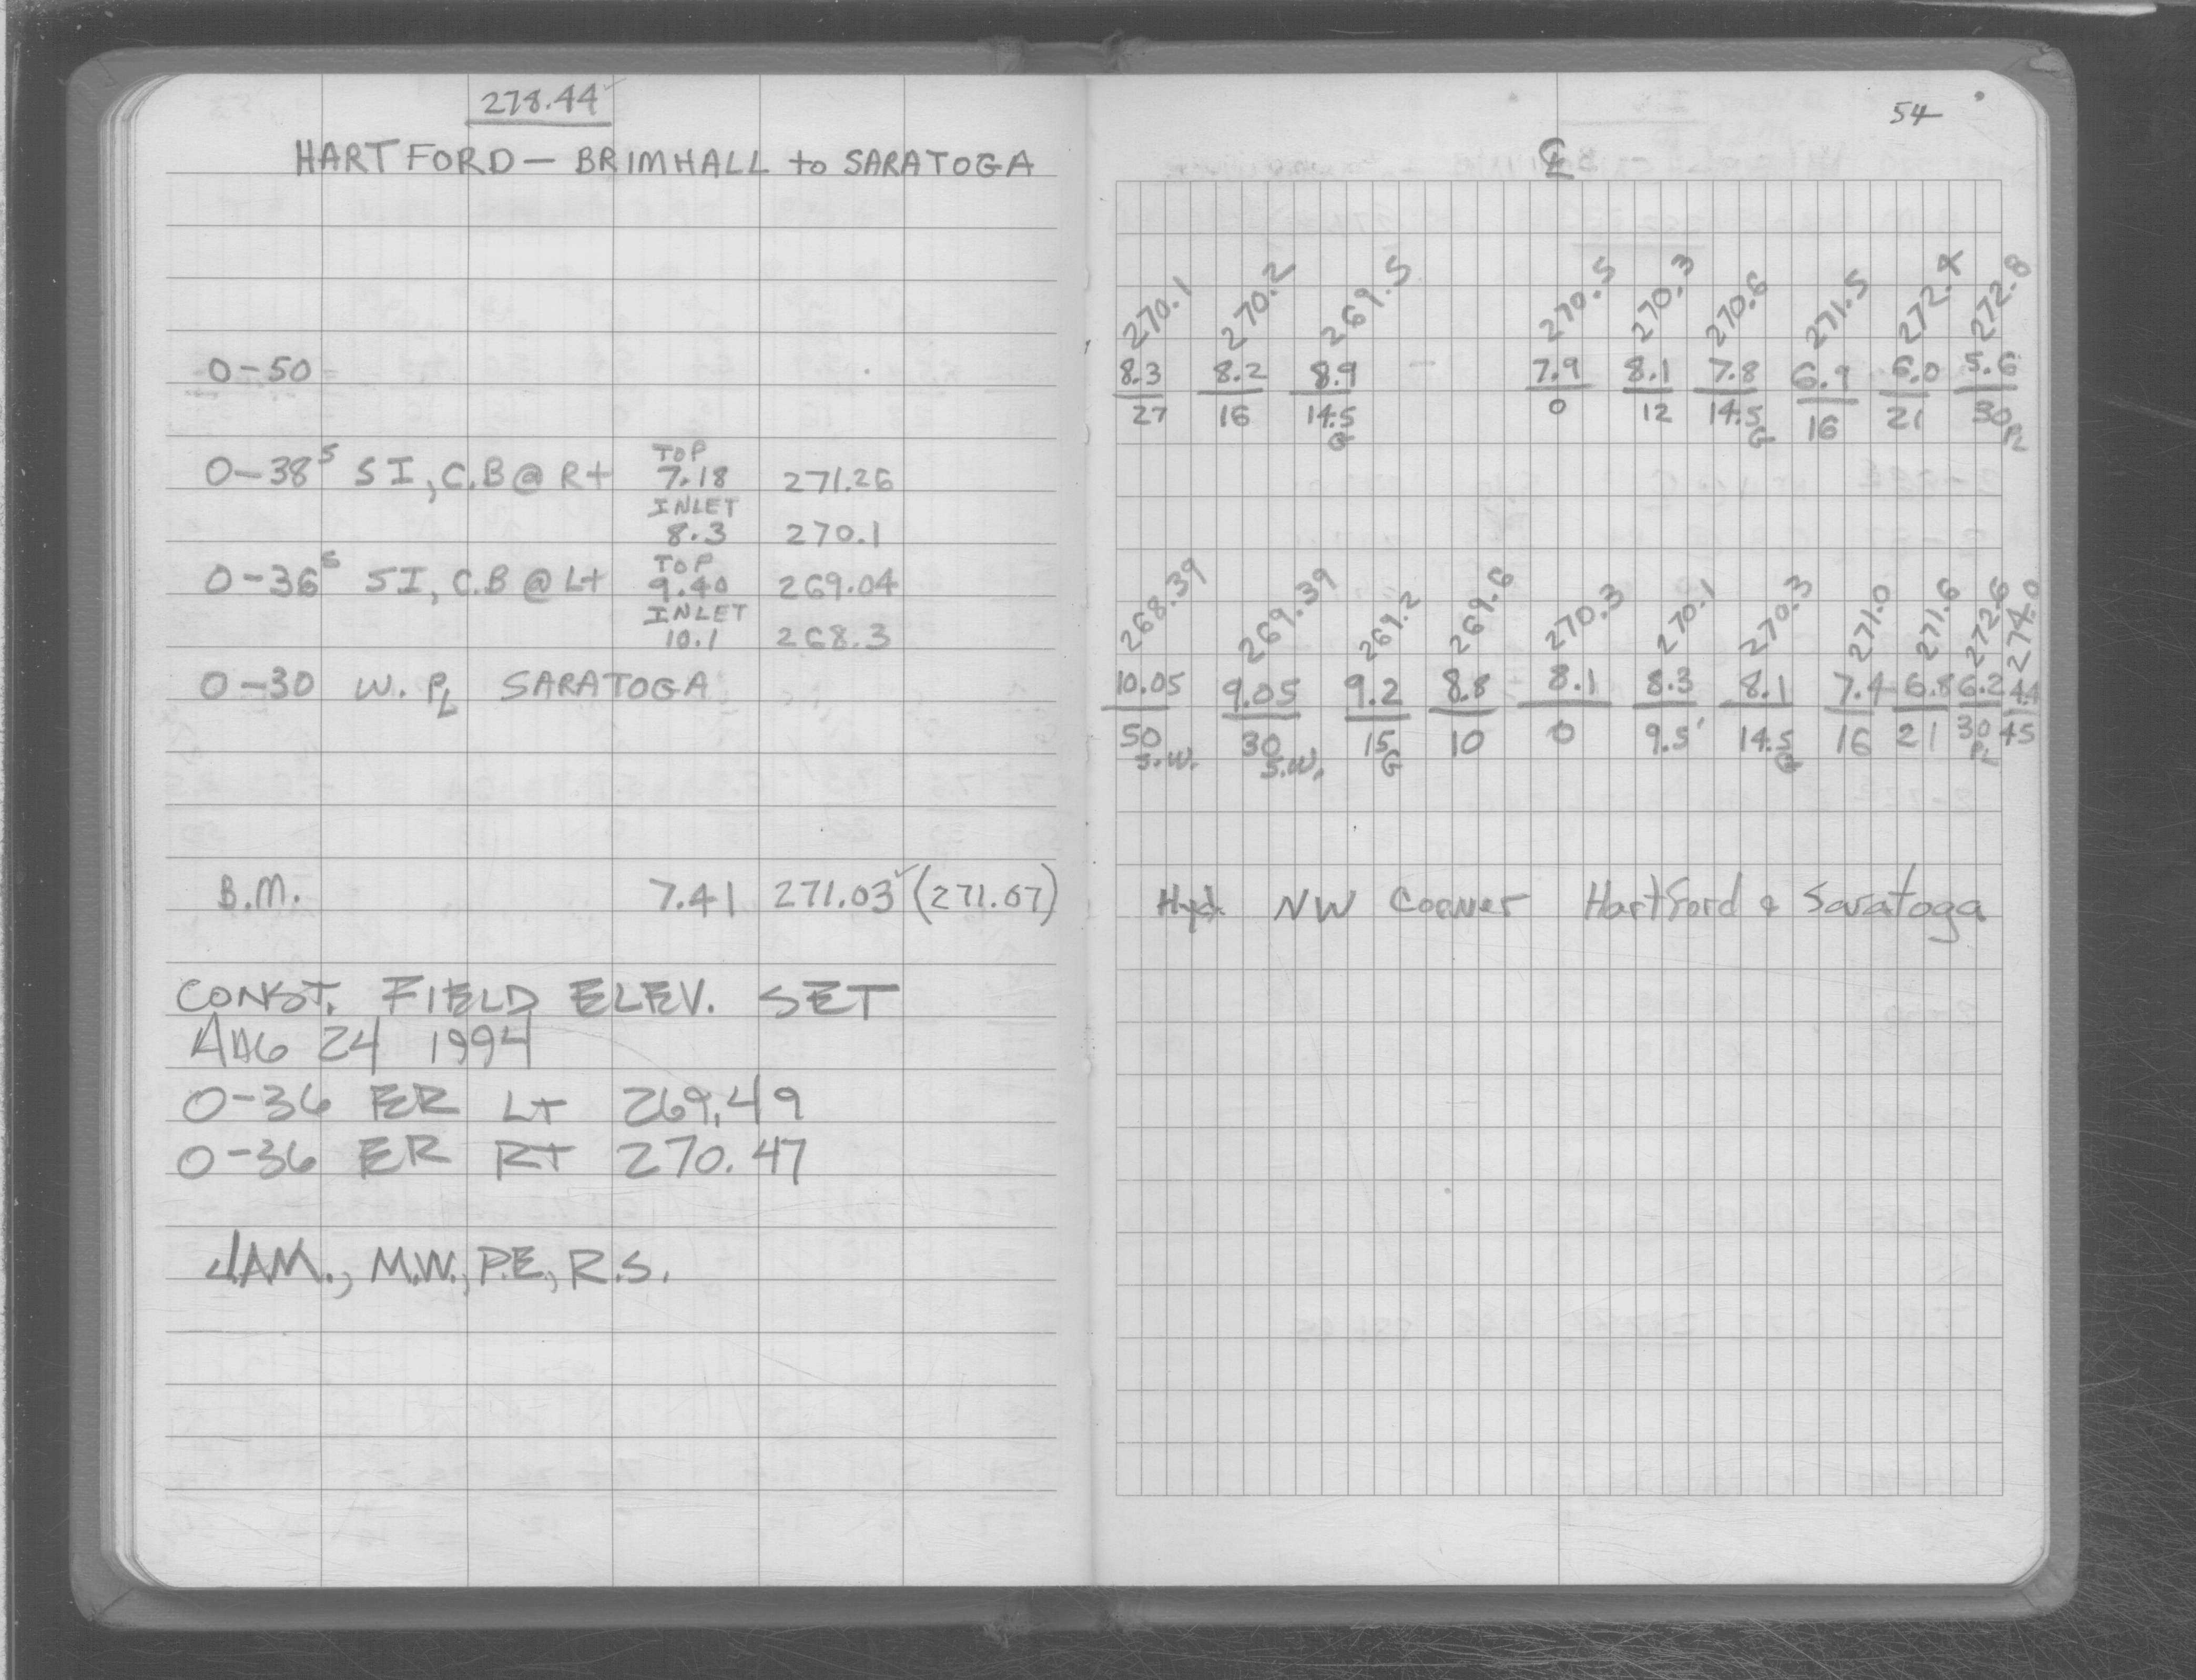 278.44
HARTFORD — BRIMHALL to SARATOGA
0-50
0-38⁵ SI, C.B @ Rt TOP 7.18 271.26
INLET 8.3 270.1
0-36⁵ SI, C.B @ Lt TOP 9.40 269.04
INLET 10.1 268.3
0-30 W. PL SARATOGA
B.M. 7.41 271.03 (271.07)
CONST. FIELD ELEV. SET
AUG 24 1994
0-36 ER Lt 269.49
0-36 ER Rt 270.47
J.A.M., M.W., P.E., R.S.
54
CL
270.1 270.2 269.5 270.5 270.3 270.6 271.5 272.4 272.8
8.3 8.2 8.9 - 7.9 8.1 7.8 6.9 6.0 5.6
27 16 14.5 0 12 14.5 16 21 30
G G PL
268.39 269.39 269.2 269.6 270.3 270.1 270.3 271.0 271.6 272.6 274.0
10.05 9.05 9.2 8.8 8.1 8.3 8.1 7.4 6.8 6.2 4.4
50 30 15 10 0 9.5' 14.5 16 21 30 45
S.W. S.W. G G PL
Hyd. NW Corner Hartford & Saratoga